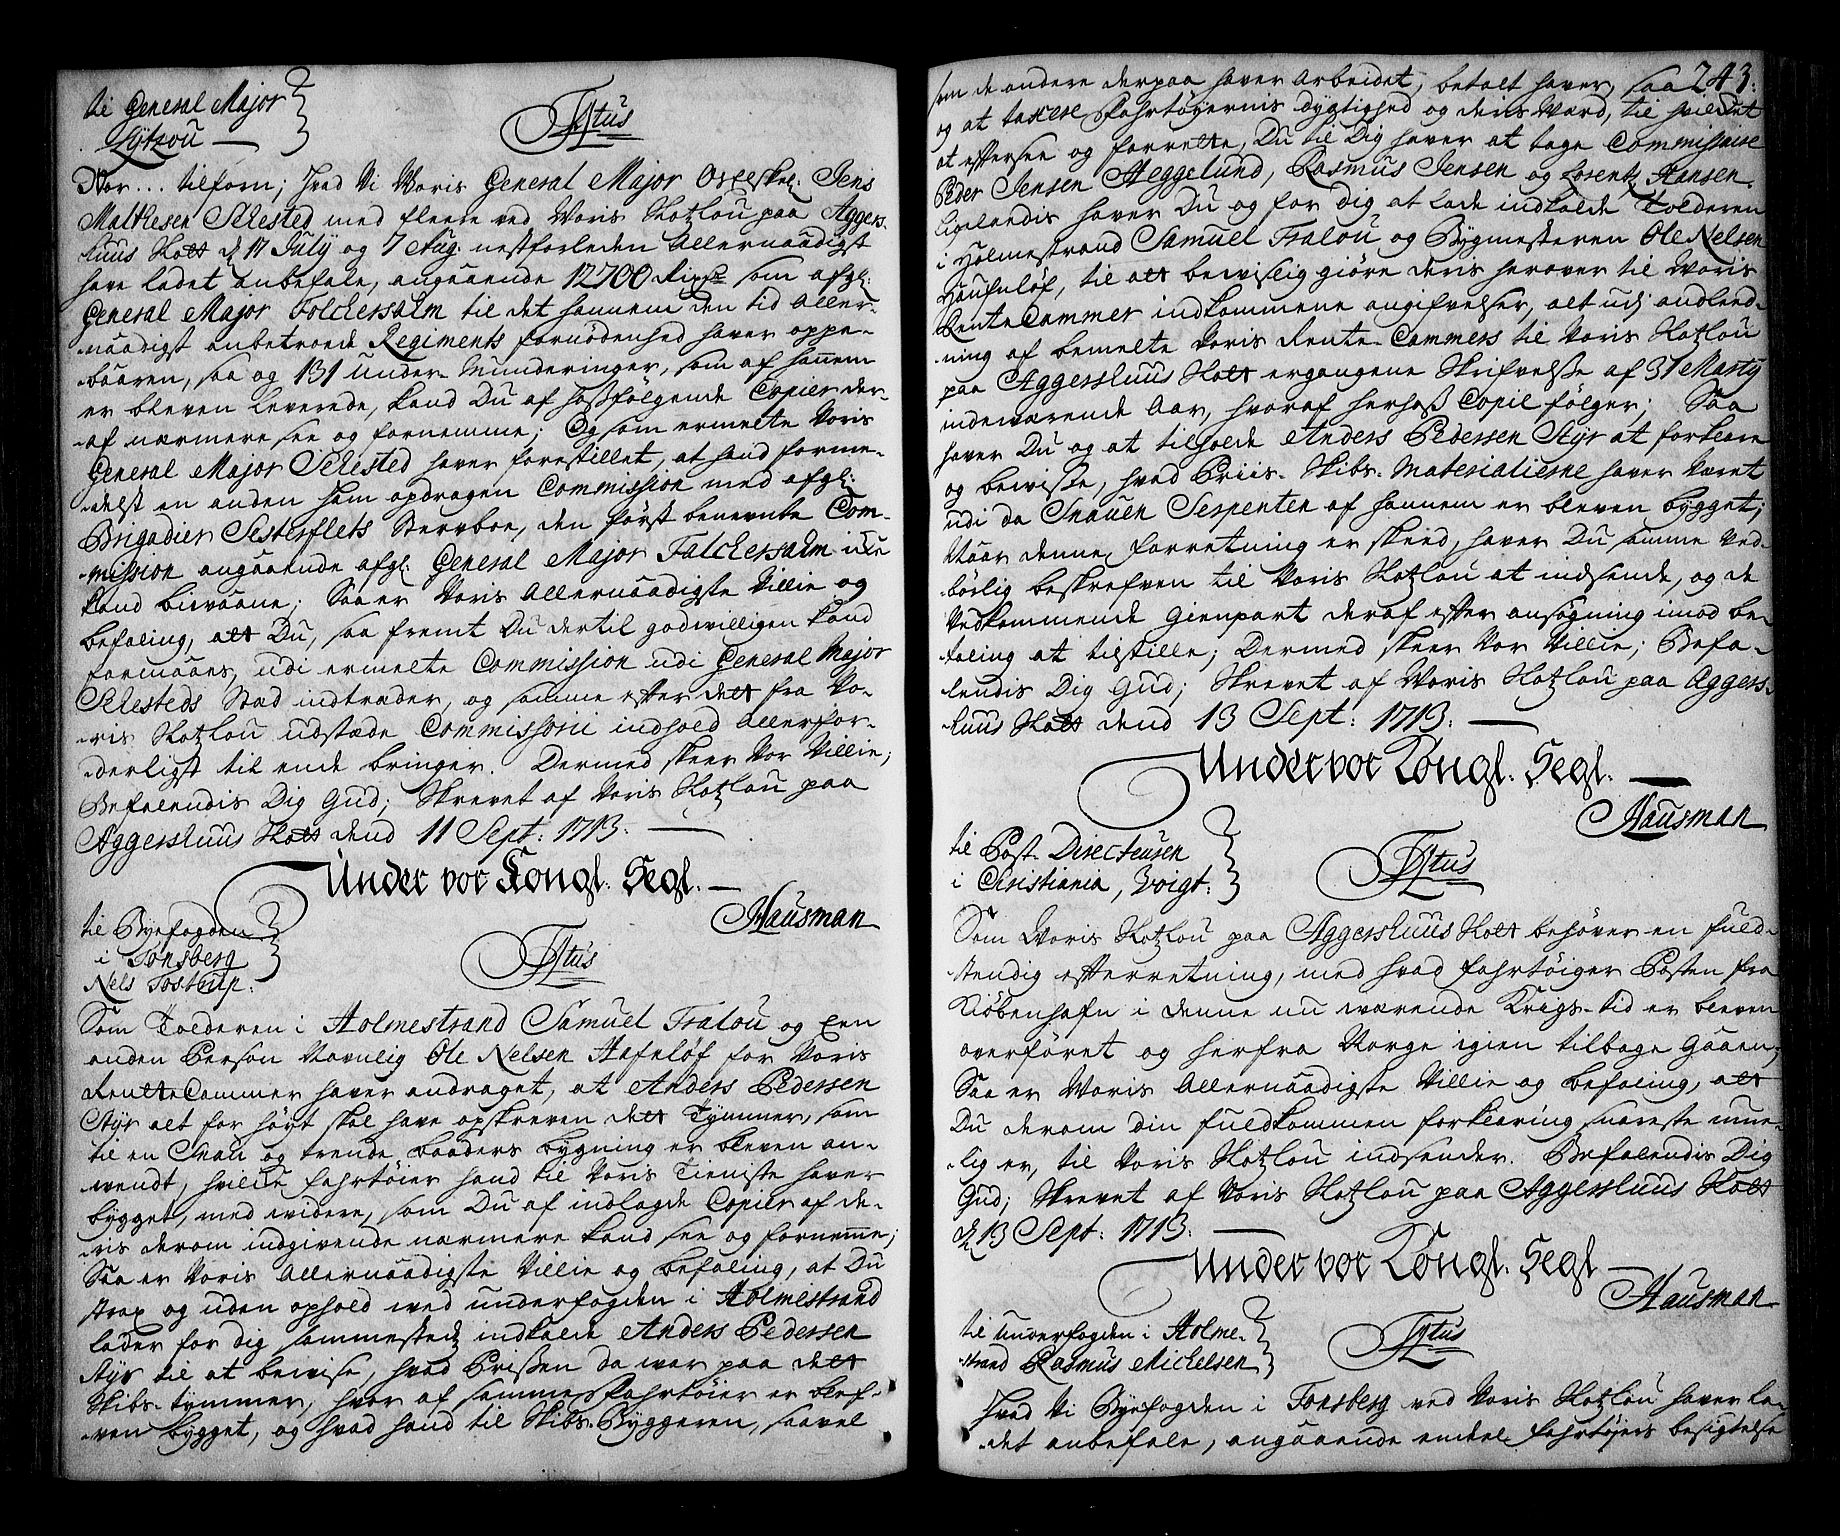 til General Major
Lÿtzou
Ftus
Vor ... tilforn; hvad Vi Voris General Major Ok Elskel: Jens
Malthesen Selested med fleere ved Voris Slotzlou paa Aggers-
huus Slott d 17 July og 7 Aug: nestforleden Allernaadigst
have ladet anbefale, angaaende 12700 Rixdr som afgl:
General Major Folckersalm til det hannem den tid Aller-
naadigst anbetroede Regiments fornödenhed haver oppe-
baaren, saa og 131 under-Munderinger, som af hannem
er bleven leverede, kand Du af hosfölgende Copier der-
af nærmere see og fornemme; Og som ermelte Voris
General Major Selested haver forestillet, at hand forme-
delst en anden ham opdragen Commission med afgl:
Brigadier Sesterflets Stervboe, den först benevnte Com-
mission angaaende afgl: General Major Falckersalm icke
kand bievaane; Saa er Voris Allernaadigste Villie og
befaling, att Du, saa fremt Du dertil godwilligen kand
formaaes, udi ermelte Commission udi General Major
Selesteds Stæd indtræder, og samme efter dett fra Vo-
ris Slotzlou udstæde Commissorii indhold allerfor-
derligst til ende bringer. Dermed skeer Vor Villie;
Befalendis Dig Gud; Skrevet af Voris Slotzlou paa
Aggershuus Slott dend 11 Sept: 1713.
Under vor Kongl. Segl.
Hausman
til Byefogden
i Tonsberg
Nels Tostrup.
Ftus
Som Tolderen i Holmestrand Samuel Tralou og Een
anden Person Navnlig Ole Nelsen Hafnlöf for Voris
RentteCammer haver andraget, at Anders Pedersen
Styr alt for höyt skal have opskreven dett Tymmer, som
til en Snau og trende baaders bygning er bleven an-
wendt, hvilcke fahrtöier hand til Voris Tieniste haver
bygget, med widere, som Du af indlagde Copier af de-
ris derom indgivende nærmere kand see og fornemme;
Saa er Voris Allernaadigste Villie og befaling, at Du
strax og uden ophold wed underfogden i Holmestrand
lader for dig sammesteds indkalde Anders Pedersen
Styr til at bewise, hvad Prissen da war paa dett
Skibs-tymmer, hvor af samme Fahrtöier er blef-
ven bygget, og hvad hand til Skibs-Byggeren, saavel
243.
som de andere derpaa haver arbeidet, betalt haver, saa
og at taxere Fahrtöyernis dygtighed og deris Værd, til hvilcket
at eftersee og forrette, Du til Dig haver at tage Commissairene
Peder Jensen Heggelund, Rasmus Jensen og Lorentz Hansen.
Ligeledis haver Du og for dig at lade indkalde Tolderen
i Holmestrand Samuel Tralou og Bygmesteren Ole Nelsen
Haufnlöf, til att bewislig giöre deris herover til Voris
RenteCammer indkommene angifvelser, alt udj anleed-
ning af bemelte Voris Rente-Cammers til Voris Slotzlou
paa Aggershuus Slott ergangene Skrifvelse af 31 Marty
indeværende Aar, hvoraf herhoß Copie fölger; Saa
haver Du og at tilholde Anders Pedersen Styr at forklare
og bewisse, hvad Priis-Skibs-Materialierne haver været
udi da Snauen Serpenten af hannem er bleven bygget;
Naar denne forretning er skeed, haver Du samme ved-
börlig beskrefven til Voris Slotzlou at indsende, og de
Vedkommende gienpart deraf efter ansögning imod be-
taling at tilstille; Dermed skeer Vor Villie; Befa-
lendis Dig Gud; Skrevet af Voris Slotzlou paa Aggers-
huus Slott dend 13 Sept: 1713.
Under vor Kongl. Segl.
Hausman
til Post-Directeusen
i Christiania, Voigt.
Ftus
Som Voris Slotzlou paa Aggershuus Slott behöver en fuld-
stendig efterretning, med hvad fahrtöiger Posten fra
Kiöbenhafn i denne nu wærende Krigs-tid er bleven
overföret og herfra Norge igien tilbage gaaen;
Saa er Voris Allernaadigste Villie og befaling, att
Du derom din fuldkommen forklaring, snareste mue-
lig er, til Voris Slotzlou indsender. Befalendis Dig
Gud; Skrevet af Voris Slotzlou paa Aggershuus Slott
d 13 Sept: 1713.
Under vor Kongl. Segl
Hausman
til underfogden i Holme-
strand Rasmus Michelsen
Ftus
Hvad Vi Byefogden i Tonsberg ved Voris Slotzlou haver la-
det anbefale, angaaende endel fahrtöiers besigtelse